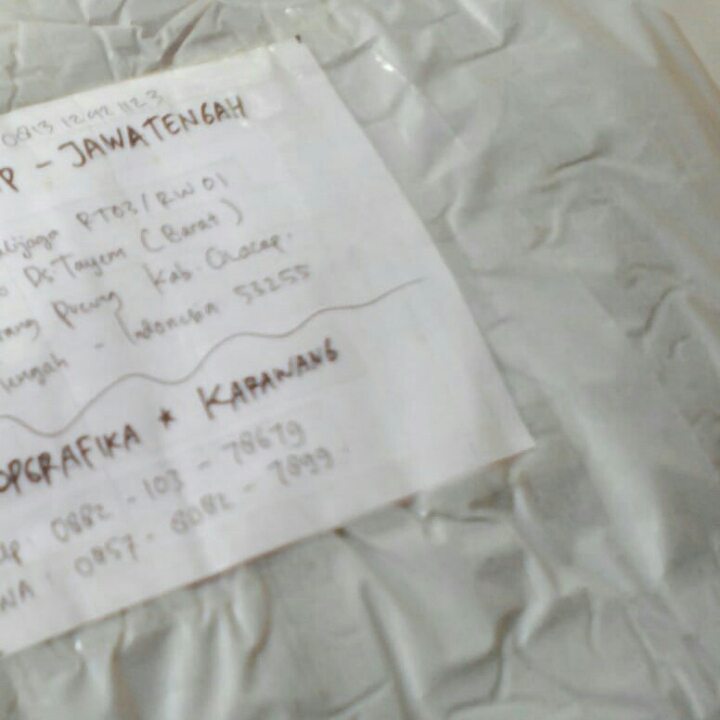 0813 1292 1123
P - JAWA TENGAH
lijaga RT03/RW 01
o Ds Tayem (Barat)
rang Pucung Kab. Cilacap.
tengah - Indonesia 53255
OPGRAFIKA * KARAWANG
lp. 0882 - 103 - 78679
WA : 0857 - 8082 - 7899